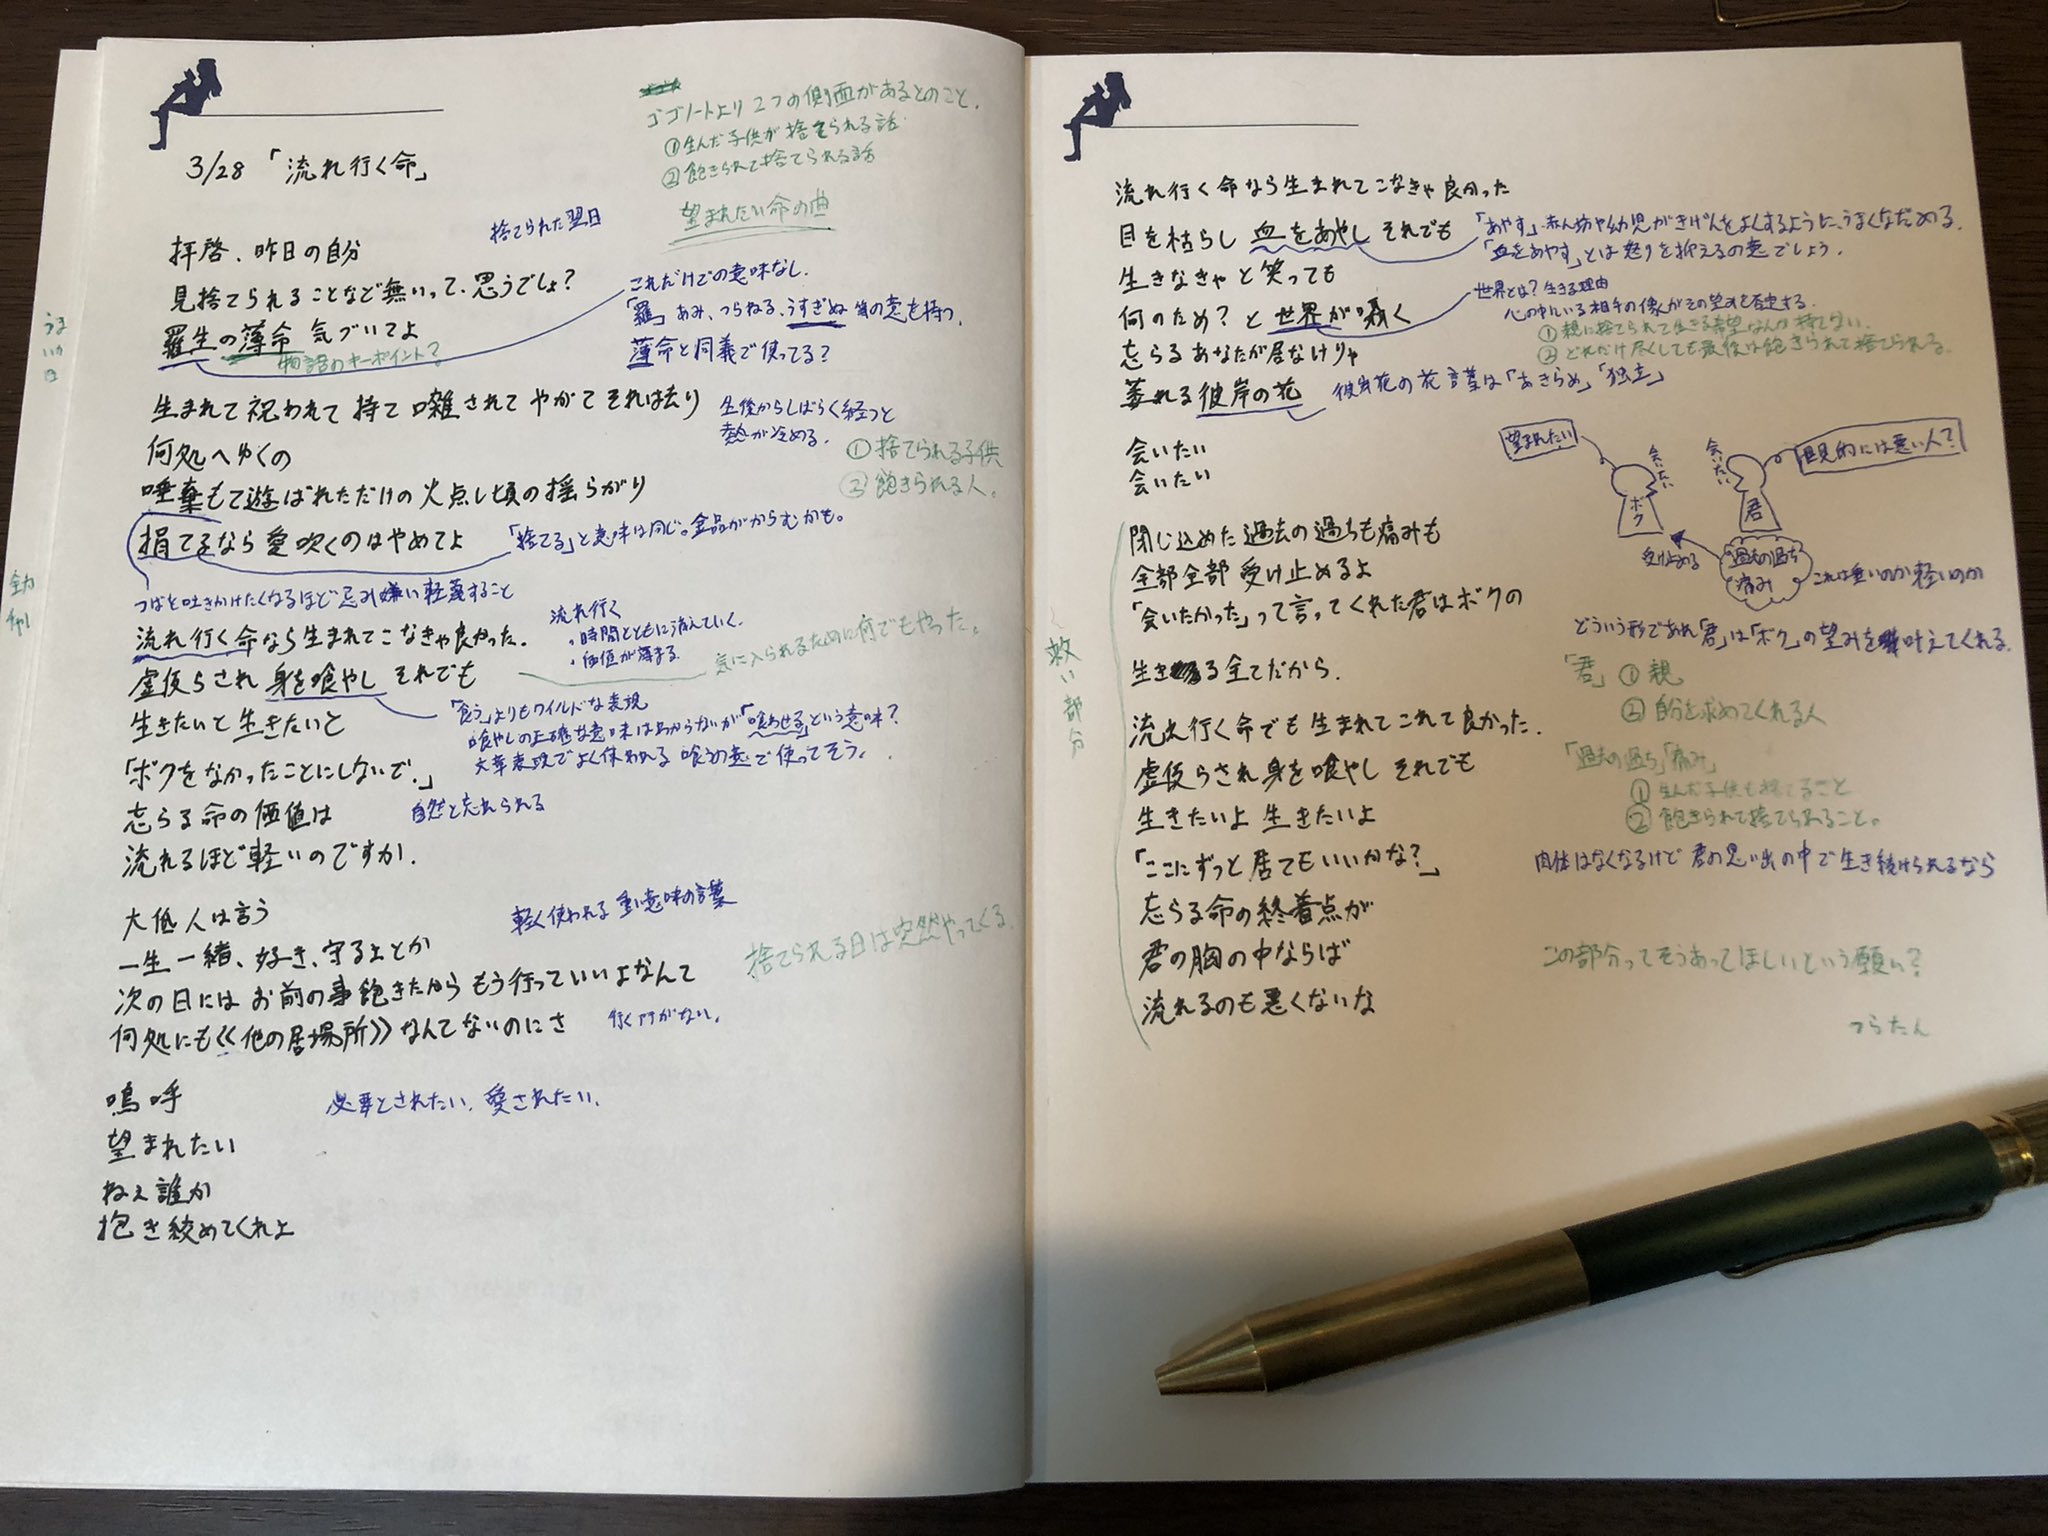 3/28 「流れ行く命」
ゴゴノートより 2つの側面があるとのこと。
①生んだ子供が捨てられる話
②飽きられて捨てられる話
望まれたい命の曲
捨てられた翌日
拝啓、昨日の自分
見捨てられることなど無いって、思うでしょ?
羅生の薄命 気づいてよ
物語のキーポイント?
これだけでの意味なし.
「羅」あみ、つらねる、うすぎぬ 等の意を持つ、
薄命と同義で使ってる?
生まれて祝われて 持て囃されて やがてそれは去り
生後からしばらく経つと
熱が冷める.
何処へゆくの
①捨てられる子供
②飽きられる人。
唾棄もて遊ばれただけの 火点し頃の揺らがり
捐てるなら 愛吹くのはやめてよ
「捨てる」と意味は同じ。金品がからむかも。
つばを吐きかけたくなるほど忌み嫌い軽蔑すること
流れ行く命なら生まれてこなきゃ良かった.
流れ行く
・時間とともに消えていく.
・価値が薄まる
気に入られるために何でもやった。
虚仮らされ 身を喰やし それでも
「食う」よりもワイルドな表現
喰やしの正確な意味はわからないが「喰わせる」という意味?
文章表現でよく使われる 喰うの意で使ってそう。
生きたいと 生きたいと
「ボクをなかったことにしないで.」
忘らる命の価値は
自然と忘れられる
流れるほど軽いのですか.
大低人は言う
軽く使われる 重い意味の言葉
一生一緒、好き、守るよとか
捨てられる日は突然やってくる.
次の日には お前の事飽きたから もう行っていいよなんて
何処にも《他の居場所》なんてないのにさ
行く所がない.
嗚呼
必要とされたい、愛されたい.
望まれたい
ねえ誰か
抱き絞めてくれよ
流れ行く命なら生まれてこなきゃ良かった
目を枯らし 血をあやし それでも
「あやす」・赤ん坊や幼児がきげんをよくするように、うまくなだめる.
「血をあやす」とは怒りを抑えるの意でしょう.
生きなきゃ と笑っても
何のため? と世界が囁く
世界とは? 生きる理由
心の中にいる相手の像がその望みを否定する.
①親に捨てられて生きる希望なんか持てない.
②どれだけ尽くしても最後は飽きられて捨てられる.
忘らるあなたが居なけりゃ
萎れる彼岸の花
彼岸花の花言葉は「あきらめ」「独立」
会いたい
会いたい
望まれたい
会いたい
ボク
会いたい
君
受け止める
過去の過ち
痛み
これは重いのか軽いのか
閉じ込めた過去の過ちも痛みも
全部全部 受け止めるよ
「会いたかった」って言ってくれた君はボクの
生きる全てだから.
どういう形であれ「君」は「ボク」の望みを叶えてくれる.
「君」①親
②自分を求めてくれる人
「過去の過ち」「痛み」
①生んだ子供を捨てること
②飽きられて捨てられること。
救い部分
流れ行く命でも 生まれてこれて良かった.
虚仮らされ 身を喰やし それでも
生きたいよ 生きたいよ
「ここにずっと居てもいいかな?」
肉体はなくなるけど 君の思い出の中で生き続けられるなら
忘らる命の終着点が
君の胸の中ならば
この部分ってそうあってほしいという願い?
流れるのも悪くないな
つらたん